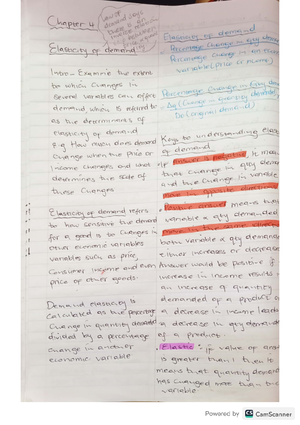 Chapter 4
Law of demand says
there is
between
Elasticity of demand
Intro - Examine the extent
to which changes in
several variables can affect
demand which is referred to
as the determinants of
elasticity of demand
e.g How much does demand
change when the price or
income changes and what
determines the size of
those changes
Elasticity of demand refers
to how sensitive the demand
for a good is to changes in
other economic variables
variables such as price,
consumer income and even
price of other goods
Demand elasticity is
calculated as the percentage
change in quantity demanded
divided by a percentage
change in another
economic variable
Elasticity of demand
= Percentage change in qty demand
Percentage change in
variable (price or income)
Percentage change in qty dem
= Δq (change in quantity demanded)
Do (original demand)
Keys to understanding elast
of demand
If answer is negative it means
that change in qty dema
and the change in variable
move in opposite direction
Positive answer means that
variable & qty demanded
move in the same direction
both variable & qty demand
either increases or decrease
Answer would be positive if
increase in income results
an increase of quantity
demanded of a product or
a decrease in income leads to
a decrease in qty demand
of a product.
Elastic: if value of answ
is greater than 1 then it
means that quantity demand
has changed more than the
variable
Powered by CS CamScanner